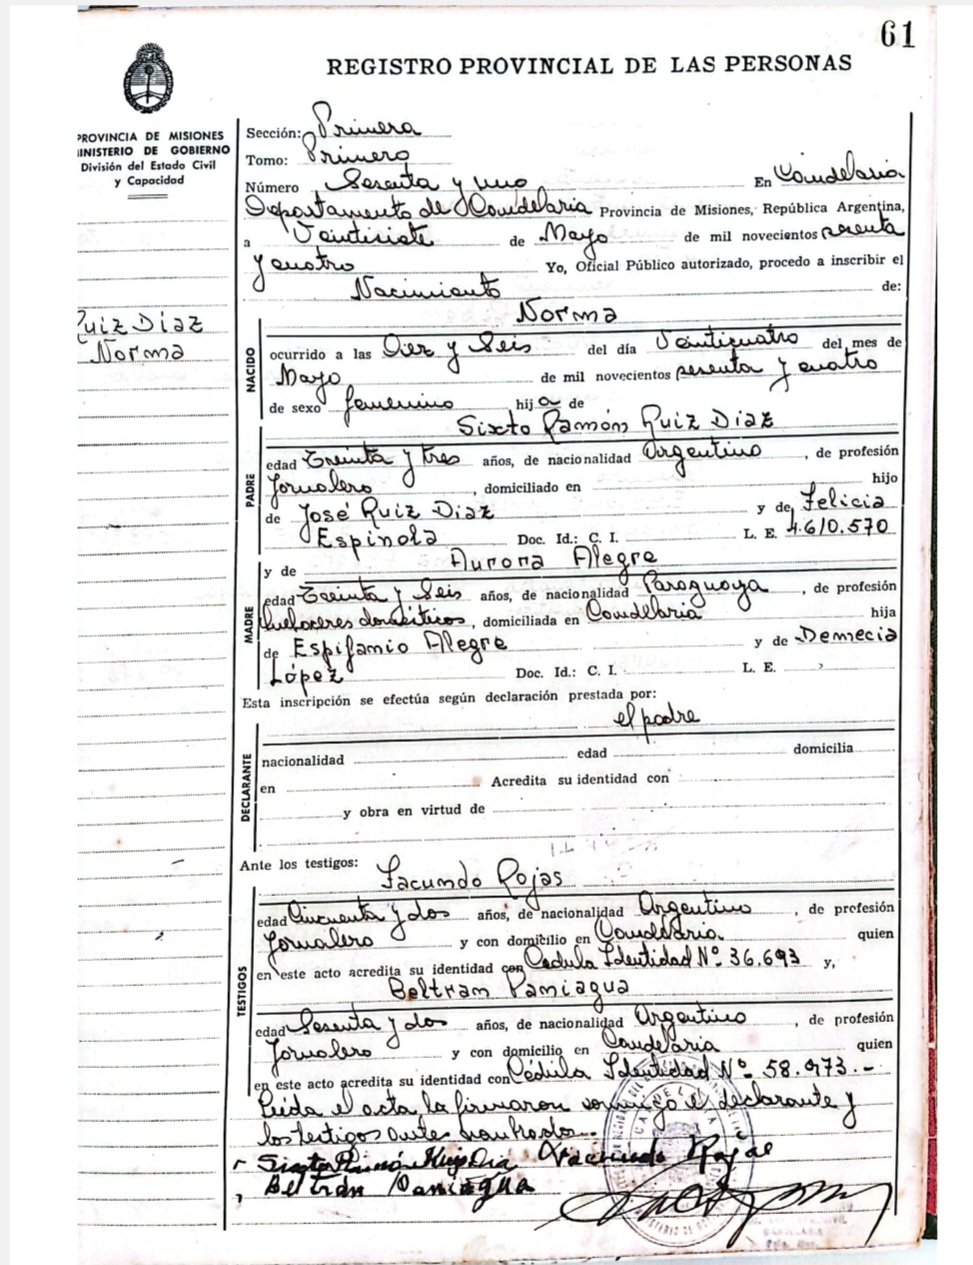 61
REGISTRO PROVINCIAL DE LAS PERSONAS
PROVINCIA DE MISIONES
MINISTERIO DE GOBIERNO
División del Estado Civil
y Capacidad
Ruiz Diaz
Norma
Sección: Primera
Tomo: Primero
Número Sesenta y uno En Candelaria
Departamento de Candelaria Provincia de Misiones, República Argentina,
a Veintisiete de Mayo de mil novecientos sesenta
y cuatro Yo, Oficial Público autorizado, procedo a inscribir el
Nacimiento de:
Norma
NACIDO
ocurrido a las Diez y Seis del día Veinticuatro del mes de
Mayo de mil novecientos sesenta y cuatro
de sexo femenino hija de
Sixto Ramón Ruiz Diaz
PADRE
edad Treinta y tres años, de nacionalidad Argentino, de profesión
Jornalero, domiciliado en hijo
de José Ruiz Diaz y de Felicia
Espinola Doc. Id.: C. I. L. E. 4.610.570
y de Aurora Alegre
MADRE
edad Treinta y Seis años, de nacionalidad Paraguaya, de profesión
Quehaceres domésticos, domiciliada en Candelaria hija
de Espifamio Alegre y de Demecia
López Doc. Id.: C. I. L. E.
Esta inscripción se efectúa según declaración prestada por:
el padre
DECLARANTE
nacionalidad edad domicilia
en Acredita su identidad con
y obra en virtud de
Ante los testigos:
Facundo Rojas
TESTIGOS
edad Cincuenta y dos años, de nacionalidad Argentino, de profesión
Jornalero y con domicilio en Candelaria quien
en este acto acredita su identidad con Cédula Identidad Nº 36.693 y,
Beltram Paniagua
edad Sesenta y dos años, de nacionalidad Argentino, de profesión
Jornalero y con domicilio en Candelaria quien
en este acto acredita su identidad con Cédula Identidad Nº 58.973.-
Leída el acta, la firmaron conmigo el declarante y
los testigos antes nombrados.-
Sixto Ramón Ruiz Dia Facundo Rojas
Beltrán Paniagua